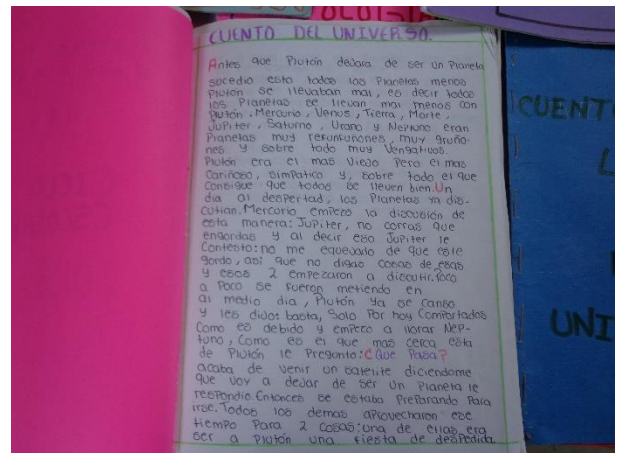 CUENTO DEL UNIVERSO.
Antes que Plutón dejara de ser un Planeta
sucedio esto todos los Planetas menos
Plutón se llevaban mal, es decir todos
los Planetas se llevan mal menos con
Plutón. Mercurio, Venus, Tierra, Marte,
Jupiter, Saturno, Urano y Neptuno eran
Planetas muy refunfuñones, muy gruño-
nes y sobre todo muy Vengativos.
Plutón era el mas Viejo Pero el mas
Cariñoso, Simpatico y, sobre todo el que
Consigue que todos se lleven bien. Un
dia al despertad, los Planetas ya dis-
cutian. Mercurio empezo la discusión de
esta manera: Jupiter, no corras que
engordas y al decir eso Jupiter le
Contesto: no me equejado de que este
gordo, asi que no digas cosas de esas
y esos 2 empezaron a discutir. Poco
a Poco se fueron metiendo en
al medio dia, Plutón ya se canso
y les dijo: basta, Solo Por hoy Comportados
Como es debido y empezo a llorar Nep-
tuno, Como es el que mas cerca esta
de Plutón le Pregunto: ¿Que Pasa?
acaba de venir un satelite diciendome
que voy a dejar de ser un Planeta le
respondio. Entonces se estaba Preparando Para
irse. Todos los demas aprovecharon ese
tiempo Para 2 Cosas: una de ellas era
ser a Plutón una fiesta de despedida
CUENTO
L
UNI